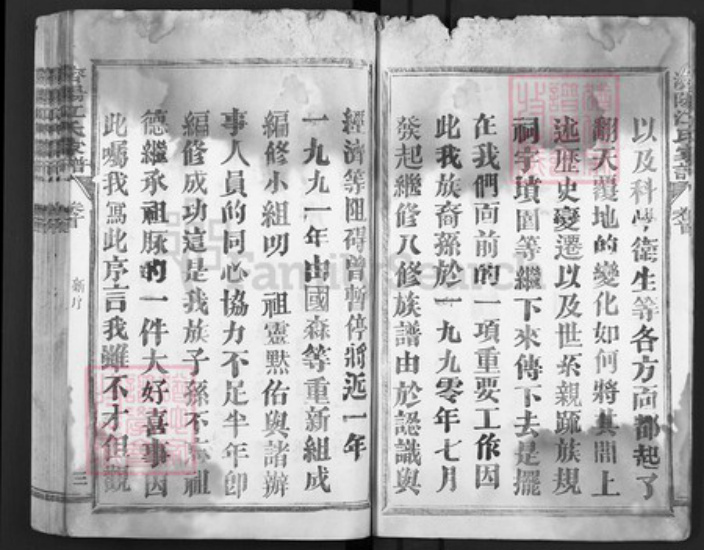 以及科學衛生等各方面都起了
翻天覆地的變化如何將其間上
述歷史變遷以及世系親疏族規
祠宇墳圖等繼下來傳下去是擺
在我們面前的一項重要工作因
此我族裔孫於一九九零年七月
發起繼修八修族譜由於認識與
經濟等阻碍曾暫停將近一年
一九九一年由國森等重新組成
編修小組叨 祖靈默佑與諸辦
事人員的同心協力不足半年即
編修成功這是我族子孫不忘祖
德繼承祖脉的一件大好喜事因
此囑我寫此序言我雖不才但觀
濟陽江氏家譜
卷首
新序
三
FamilySearch